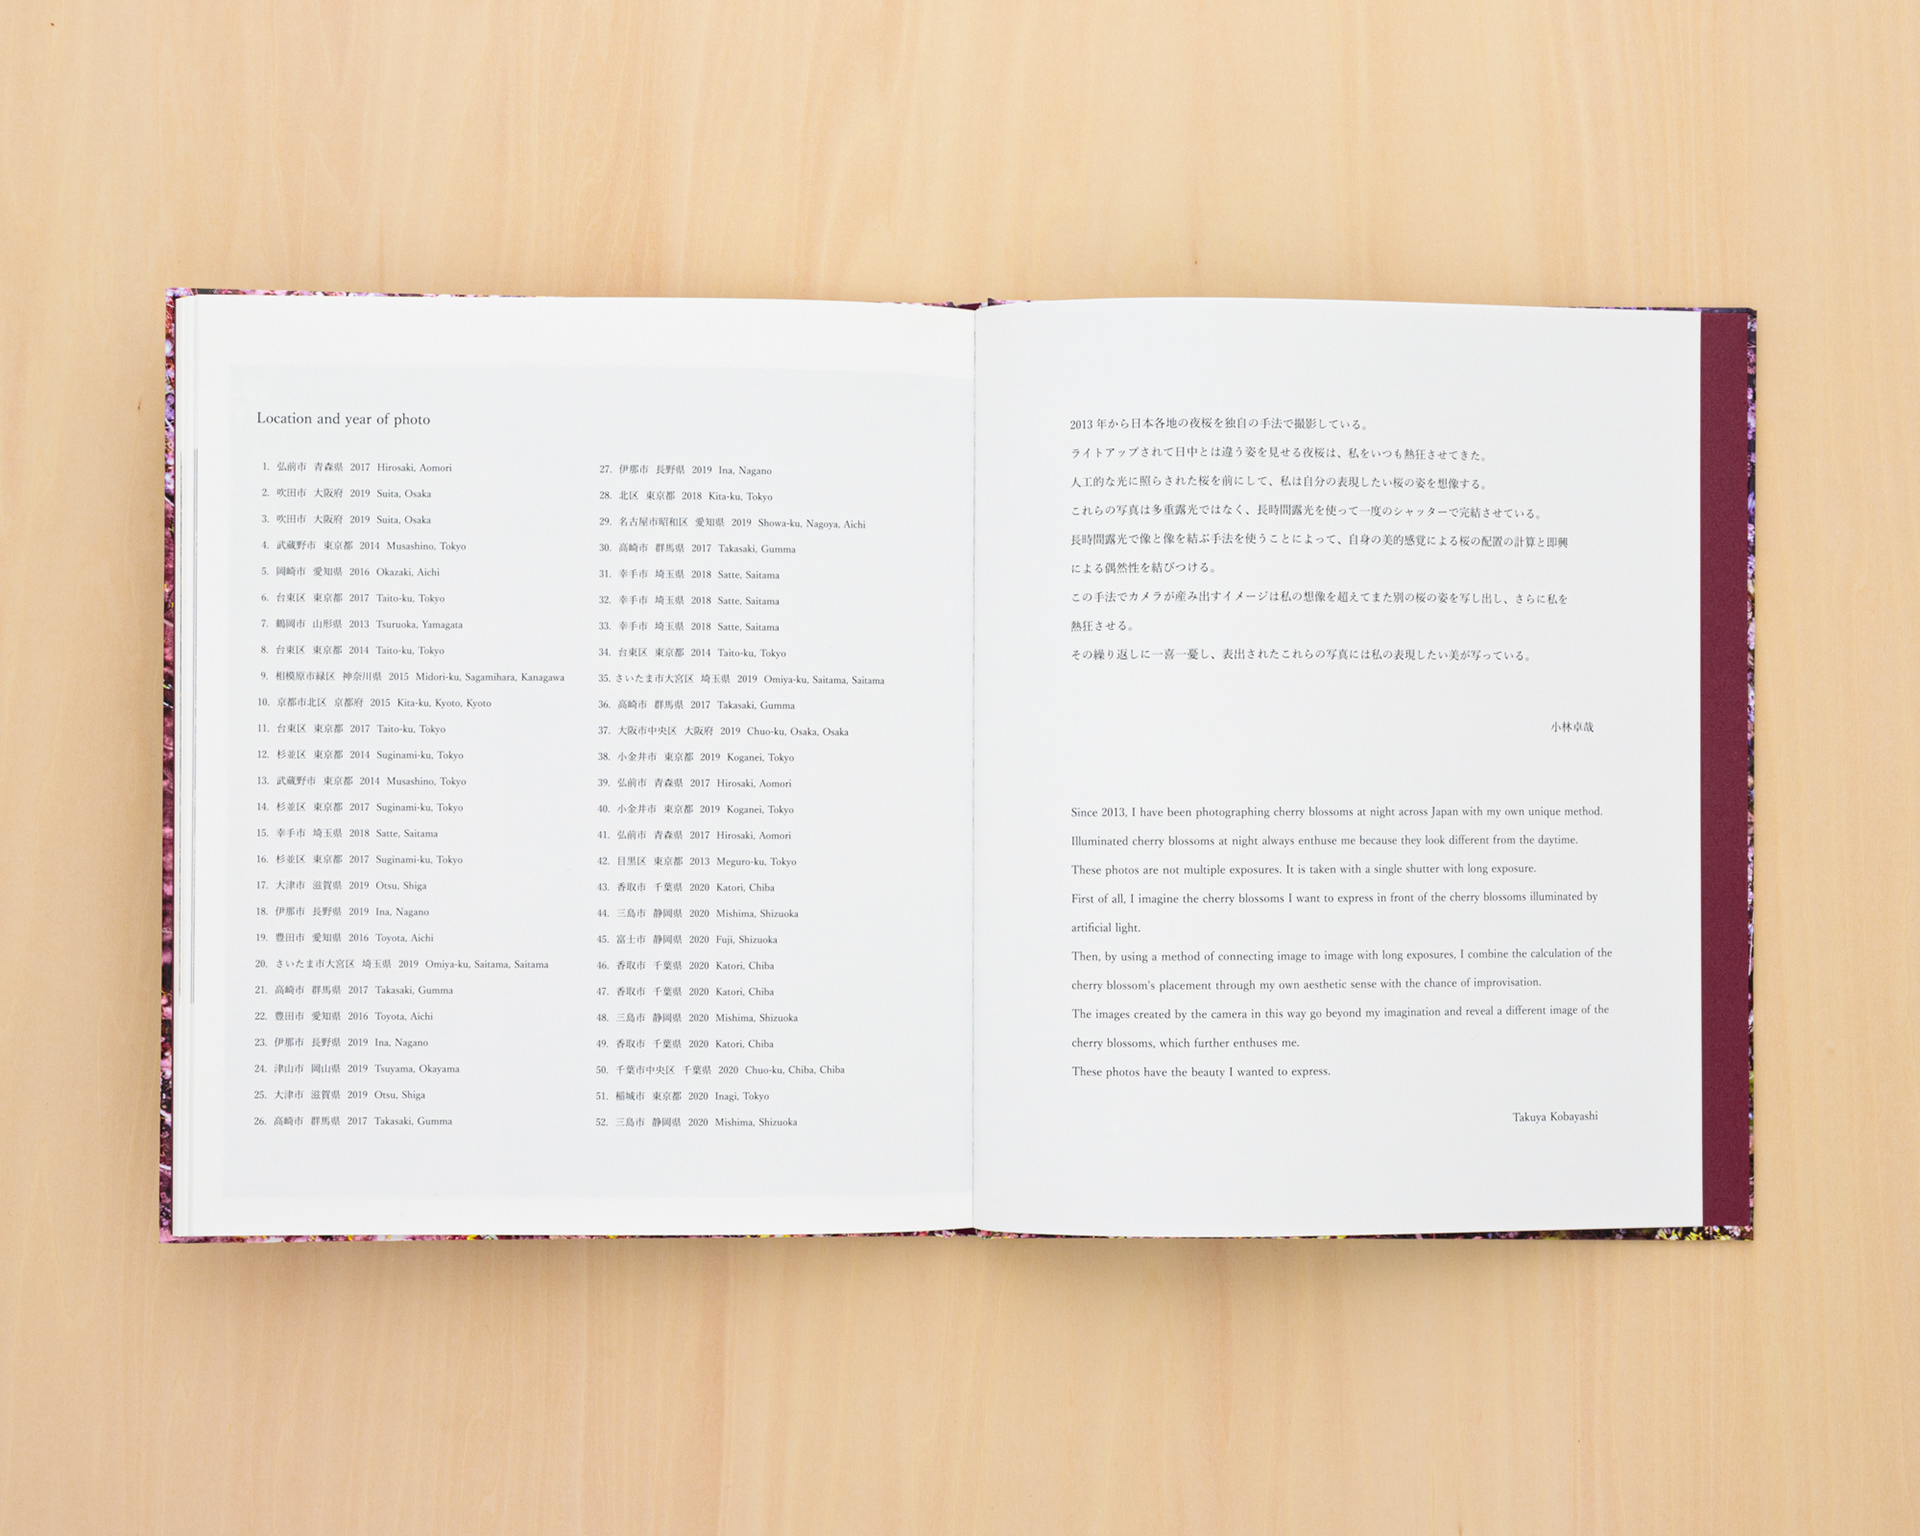 Location and year of photo
1. 弘前市 青森県 2017 Hirosaki, Aomori
2. 吹田市 大阪府 2019 Suita, Osaka
3. 吹田市 大阪府 2019 Suita, Osaka
4. 武蔵野市 東京都 2014 Musashino, Tokyo
5. 岡崎市 愛知県 2016 Okazaki, Aichi
6. 台東区 東京都 2017 Taito-ku, Tokyo
7. 鶴岡市 山形県 2013 Tsuruoka, Yamagata
8. 台東区 東京都 2014 Taito-ku, Tokyo
9. 相模原市緑区 神奈川県 2015 Midori-ku, Sagamihara, Kanagawa
10. 京都市北区 京都府 2015 Kita-ku, Kyoto, Kyoto
11. 台東区 東京都 2017 Taito-ku, Tokyo
12. 杉並区 東京都 2014 Suginami-ku, Tokyo
13. 武蔵野市 東京都 2014 Musashino, Tokyo
14. 杉並区 東京都 2017 Suginami-ku, Tokyo
15. 幸手市 埼玉県 2018 Satte, Saitama
16. 杉並区 東京都 2017 Suginami-ku, Tokyo
17. 大津市 滋賀県 2019 Otsu, Shiga
18. 伊那市 長野県 2019 Ina, Nagano
19. 豊田市 愛知県 2016 Toyota, Aichi
20. さいたま市大宮区 埼玉県 2019 Omiya-ku, Saitama, Saitama
21. 高崎市 群馬県 2017 Takasaki, Gumma
22. 豊田市 愛知県 2016 Toyota, Aichi
23. 伊那市 長野県 2019 Ina, Nagano
24. 津山市 岡山県 2019 Tsuyama, Okayama
25. 大津市 滋賀県 2019 Otsu, Shiga
26. 高崎市 群馬県 2017 Takasaki, Gumma
27. 伊那市 長野県 2019 Ina, Nagano
28. 北区 東京都 2018 Kita-ku, Tokyo
29. 名古屋市昭和区 愛知県 2019 Showa-ku, Nagoya, Aichi
30. 高崎市 群馬県 2017 Takasaki, Gumma
31. 幸手市 埼玉県 2018 Satte, Saitama
32. 幸手市 埼玉県 2018 Satte, Saitama
33. 幸手市 埼玉県 2018 Satte, Saitama
34. 台東区 東京都 2014 Taito-ku, Tokyo
35. さいたま市大宮区 埼玉県 2019 Omiya-ku, Saitama, Saitama
36. 高崎市 群馬県 2017 Takasaki, Gumma
37. 大阪市中央区 大阪府 2019 Chuo-ku, Osaka, Osaka
38. 小金井市 東京都 2019 Koganei, Tokyo
39. 弘前市 青森県 2017 Hirosaki, Aomori
40. 小金井市 東京都 2019 Koganei, Tokyo
41. 弘前市 青森県 2017 Hirosaki, Aomori
42. 目黒区 東京都 2013 Meguro-ku, Tokyo
43. 香取市 千葉県 2020 Katori, Chiba
44. 三島市 静岡県 2020 Mishima, Shizuoka
45. 富士市 静岡県 2020 Fuji, Shizuoka
46. 香取市 千葉県 2020 Katori, Chiba
47. 香取市 千葉県 2020 Katori, Chiba
48. 三島市 静岡県 2020 Mishima, Shizuoka
49. 香取市 千葉県 2020 Katori, Chiba
50. 千葉市中央区 千葉県 2020 Chuo-ku, Chiba, Chiba
51. 稲城市 東京都 2020 Inagi, Tokyo
52. 三島市 静岡県 2020 Mishima, Shizuoka
2013 年から日本各地の夜桜を独自の手法で撮影している。
ライトアップされて日中とは違う姿を見せる夜桜は、私をいつも熱狂させてきた。
人工的な光に照らされた桜を前にして、私は自分の表現したい桜の姿を想像する。
これらの写真は多重露光ではなく、長時間露光を使って一度のシャッターで完結させている。
長時間露光で像と像を結ぶ手法を使うことによって、自身の美的感覚による桜の配置の計算と即興
による偶然性を結びつける。
この手法でカメラが産み出すイメージは私の想像を超えてまた別の桜の姿を写し出し、さらに私を
熱狂させる。
その繰り返しに一喜一憂し、表出されたこれらの写真には私の表現したい美が写っている。
小林卓哉
Since 2013, I have been photographing cherry blossoms at night across Japan with my own unique method.
Illuminated cherry blossoms at night always enthuse me because they look different from the daytime.
These photos are not multiple exposures. It is taken with a single shutter with long exposure.
First of all, I imagine the cherry blossoms I want to express in front of the cherry blossoms illuminated by
artificial light.
Then, by using a method of connecting image to image with long exposures, I combine the calculation of the
cherry blossom's placement through my own aesthetic sense with the chance of improvisation.
The images created by the camera in this way go beyond my imagination and reveal a different image of the
cherry blossoms, which further enthuses me.
These photos have the beauty I wanted to express.
Takuya Kobayashi